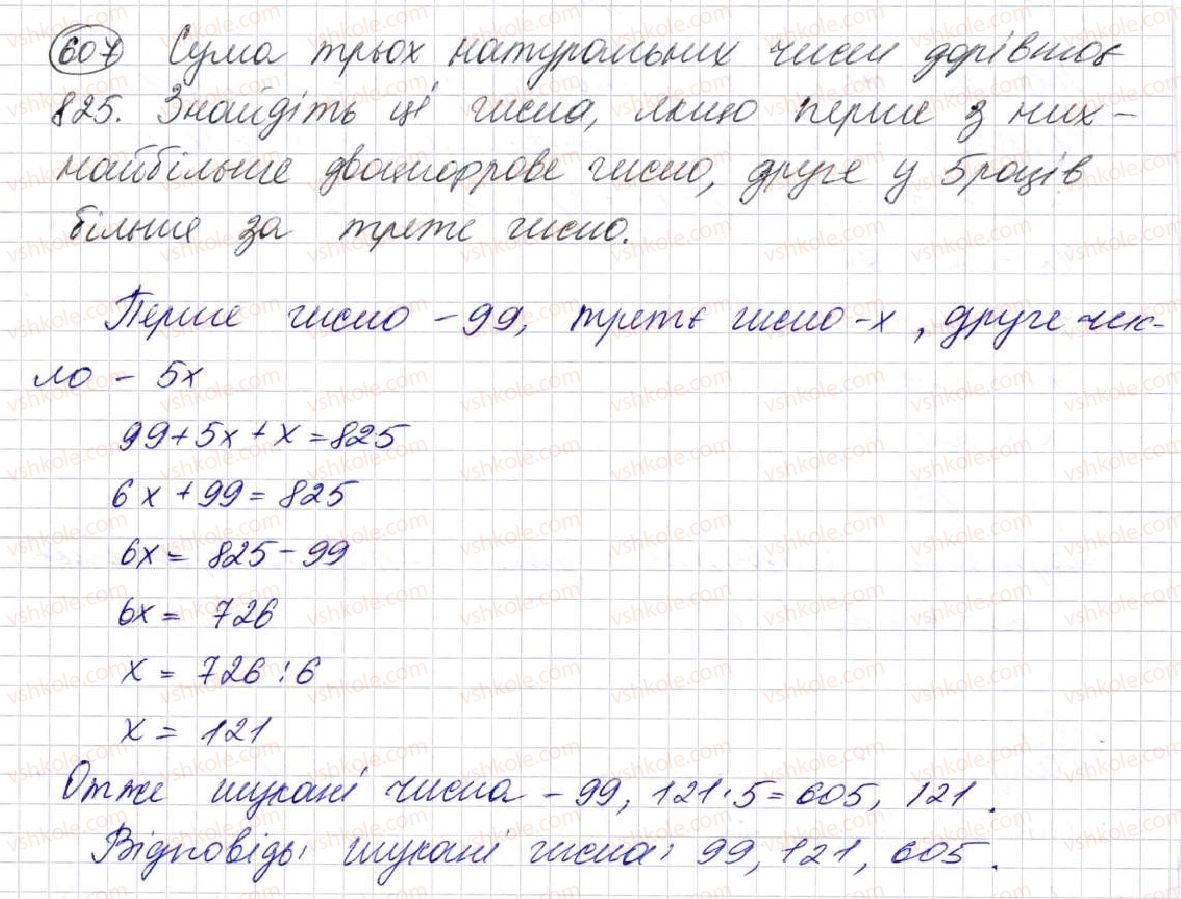 607 Сума трьох натуральних чисел дорівнює
825. Знайдіть ці числа, якщо перше з них –
найбільше двоцифрове число, друге у 5 разів
більше за третє число.
Перше число – 99, третє число – x, друге чис-
ло – 5x
99+5x+x=825
6x+99=825
6x=825-99
6x=726
x=726:6
x=121
Отже шукані числа – 99, 121·5=605, 121.
Відповідь: шукані числа: 99, 121, 605.